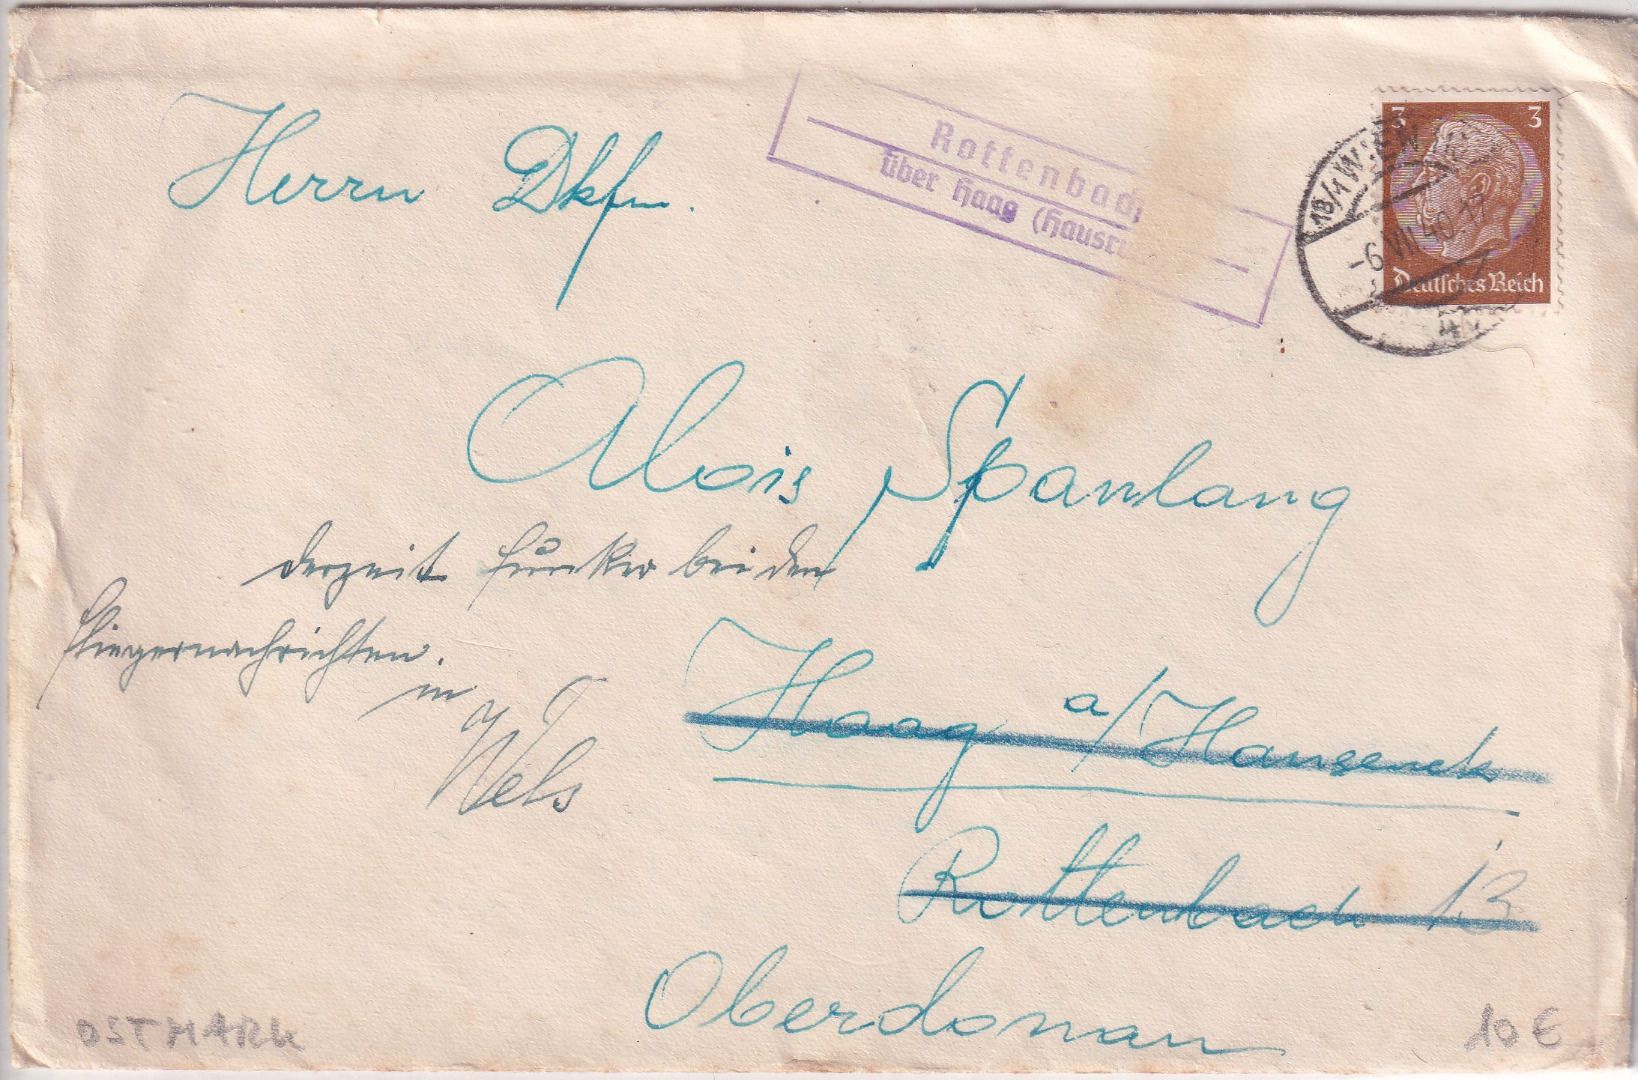 Herrn Dkfm.
Rottenbach
über Haag (Hausru
3 3
Deutsches Reich
18/1 WIEN
-6.VII.40.17
Alois Spanlang
derzeit Funker bei den
Fliegernachrichten.
in
Wels
Haag a/Hausruck
Rottenbach 13
Oberdonau
OSTMARK
10 €